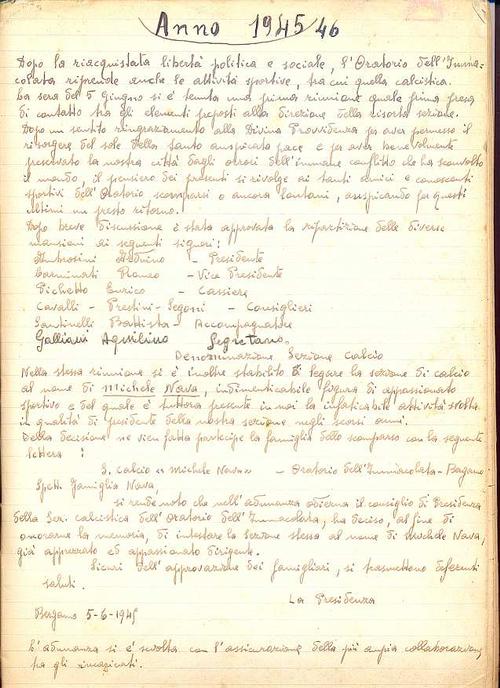 Anno 1945/46
Dopo la riacquistata libertà politica e sociale, l'Oratorio dell'Imma=
colata riprende anche le attività sportive, tra cui quella calcistica.
La sera del 5 giugno si è tenuta una prima riunione quale prima presa
di contatto tra gli elementi preposti alla direzione della risorta sezione.
Dopo un sentito ringraziamento alla Divina Provvidenza per aver permesso il
risorgere del sole della tanto auspicata pace e per aver benevolmente
preservato la nostra città dagli orrori dell'immane conflitto che ha sconvolto
il mondo, il pensiero dei presenti si rivolge ai tanti amici e conoscenti
sportivi dell'Oratorio scomparsi o ancora lontani, auspicando per questi
ultimi un presto ritorno.
Dopo breve discussione è stata approvata la ripartizione delle diverse
mansioni ai seguenti signori:
Ambrosini - Presidente
Carminati Romeo - Vice Presidente
Pichetto Enrico - Cassiere
Cavalli - Prestini - Segoni - Consiglieri
Santinelli Battista - Accompagnatore
Galliani Aquilino Segretario
Denominazione Sezione Calcio
Nella stessa riunione si è inoltre stabilito di legare la sezione di calcio
al nome di Michele Nava, indimenticabile figura di appassionato
sportivo e del quale è tuttora presente in noi la infaticabile attività svolta
in qualità di presidente della nostra sezione negli scorsi anni.
Della decisione ne vien fatta partecipe la famiglia dello scomparso con la seguente
lettera:
S. Calcio «Michele Nava» - Oratorio dell'Immacolata - Bergamo
Spett. Famiglia Nava,
si rende noto che nell'adunanza odierna il consiglio di Presidenza
della Sez. calcistica dell'Oratorio dell'Immacolata, ha deciso, al fine di
onorarne la memoria, di intestare la sezione stessa al nome di Michele Nava,
già apprezzato ed appassionato dirigente.
Sicuri dell'approvazione dei famigliari, si trasmettono deferenti
saluti.
La Presidenza
Bergamo 5-6-1945
L'adunanza si è svolta con l'assicurazione della più ampia collaborazione
tra gli incaricati.